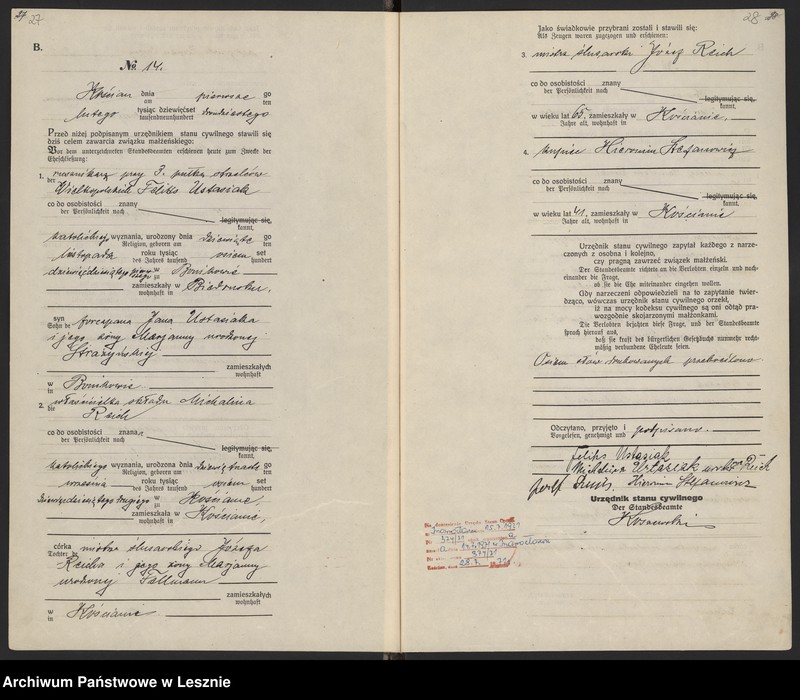 27
27
B.
No. 14.
Kościan dnia pierwszego
am ten
lutego tysiąc dziewięćset dwudziestego
tausendneunhundert
Przed niżej podpisanym urzędnikiem stanu cywilnego stawili się
dziś celem zawarcia związku małżeńskiego:
Vor dem unterzeichneten Standesbeamten erschienen heute zum Zwecke der
Eheschließung:
1. przy 3. pułku strzelców
der
Wielkopolskich Feliks Ustasiak
co do osobistości znany
der Persönlichkeit nach
legitymując się,
kannt,
katolickiego wyznania, urodzony dnia dziewiątego
Religion, geboren am ten
listopada roku tysiąc osiem set
des Jahres tausend hundert
dziewięćdziesiątego w Bonikowie
zu
zamieszkały w Biedrusku,
wohnhaft in
syn fornala Jana Ustasiaka
Sohn de
i jego żony Marjanny urodzonej
Strażyńskiej
zamieszkałych
wohnhaft
w Bonikowie
in
2. właścicielka składu Michalina
die
Reich
co do osobistości znana
der Persönlichkeit nach
legitymując się,
kannt,
katolickiego wyznania, urodzona dnia dziewiętnastego
Religion, geboren am ten
września roku tysiąc osiem set
des Jahres tausend hundert
dziewięćdziesiątego drugiego w Kościanie,
zu
zamieszkała w Kościanie,
wohnhaft in
córka mistrza ślusarskiego Józefa
Tochter de
Reicha i jego żony Marjanny
urodzonej Tellmann
zamieszkałych
wohnhaft
w Kościanie
in
28
Jako świadkowie przybrani zostali i stawili się:
Als Zeugen waren zugezogen und erschienen:
3. mistrz ślusarski Józef Reich
co do osobistości znany
der Persönlichkeit nach
legitymując się,
kannt,
w wieku lat 65, zamieszkały w Kościanie,
Jahre alt, wohnhaft in
4. kupiec Hieronim Stefanowicz
co do osobistości znany
der Persönlichkeit nach
legitymując się,
kannt,
w wieku lat 41, zamieszkały w Kościanie
Jahre alt, wohnhaft in
Urzędnik stanu cywilnego zapytał każdego z narze-
czonych z osobna i kolejno,
czy pragną zawrzeć związek małżeński.
Der Standesbeamte richtete an die Verlobten einzeln und nach-
einander die Frage,
ob sie die Ehe miteinander eingehen wollen.
Gdy narzeczeni odpowiedzieli na to zapytanie twier-
dząco, wówczas urzędnik stanu cywilnego orzekł,
iż na mocy kodeksu cywilnego są oni odtąd pra-
wozgodnie skojarzonymi małżonkami.
Die Verlobten bejahten diese Frage, und der Standesbeamte
sprach hierauf aus,
daß sie kraft des bürgerlichen Gesetzbuchs nunmehr recht-
mäßig verbundene Eheleute seien.
Osiem słów drukowanych przekreślono
Odczytano, przyjęto i podpisano.
Vorgelesen, genehmigt und
Feliks Ustasiak
Michalina Ustasiak urodz. Reich
Józef Reich Hieronim Stefanowicz
Urzędnik stanu cywilnego
Der Standesbeamte
Archiwum Państwowe w Lesznie